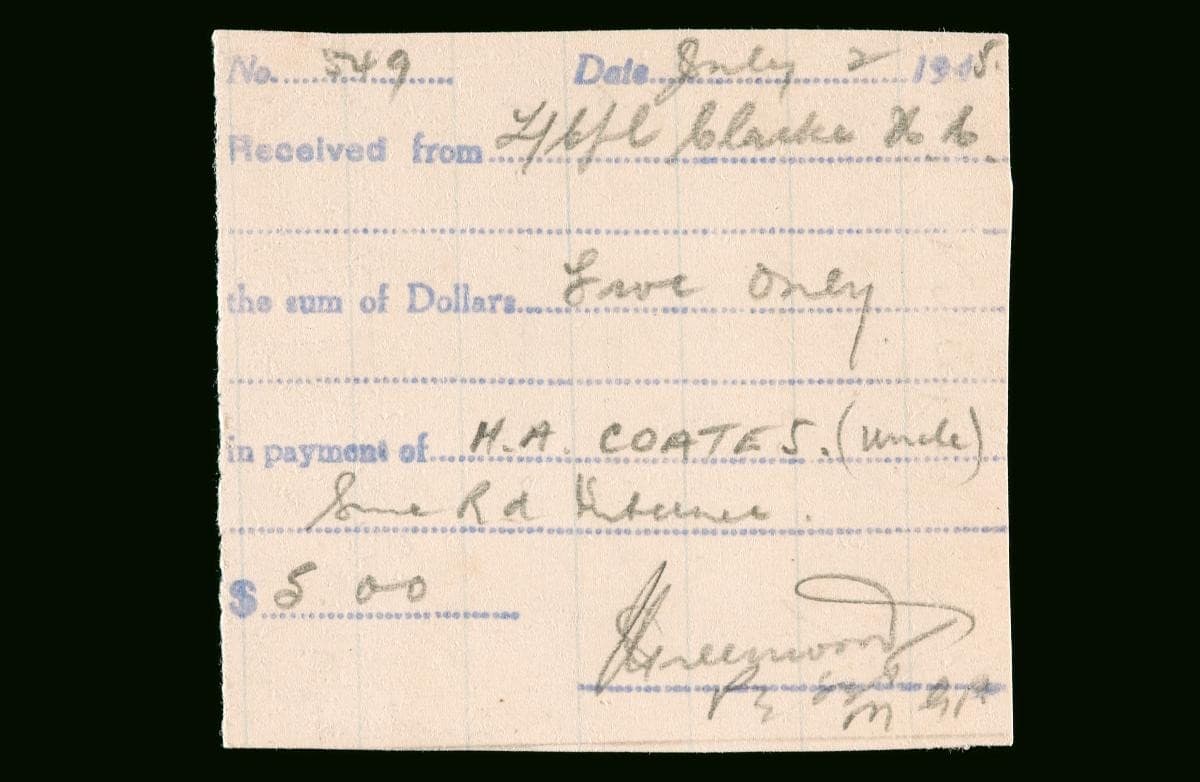 No. 549 Date July 2 1945.
Received from L/Cpl Clarke H C.
the sum of Dollars Five Only
in payment of H.A. COATES. (Uncle)
Rd
$ 5 00
Greenwood